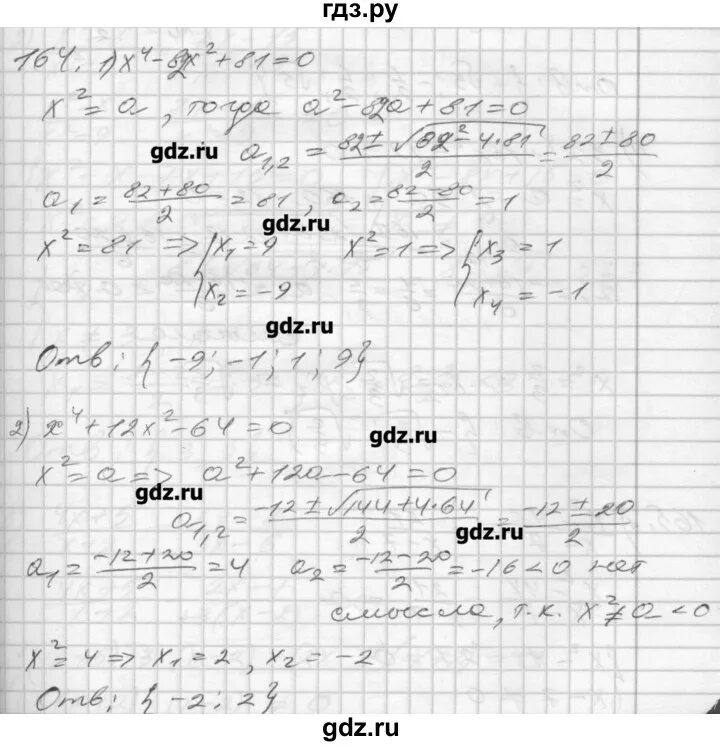 гдз.ру
164. 1) x⁴ - 82x² + 81 = 0
x² = a, тогда a² - 82a + 81 = 0
gdz.ru a₁,₂ = (82 ± √(82² - 4·81))/2 = (82 ± 80)/2
a₁ = (82 + 80)/2 = 81, a₂ = (82 - 80)/2 = 1
gdz.ru
x² = 81 => { x₁ = 9 x² = 1 => { x₃ = 1
x₂ = -9 x₄ = -1
gdz.ru
Отв: { -9; -1; 1; 9}
2) x⁴ + 12x² - 64 = 0
gdz.ru
x² = a => a² + 12a - 64 = 0
gdz.ru
a₁,₂ = (-12 ± √(144 + 4·64))/2 = (-12 ± 20)/2
gdz.ru
a₁ = (-12 + 20)/2 = 4 a₂ = (-12 - 20)/2 = -16 < 0 нет
смысла, т.к. x² ≠ a < 0
x² = 4 => x₁ = 2, x₂ = -2
Отв: { -2; 2}
gdz.ru